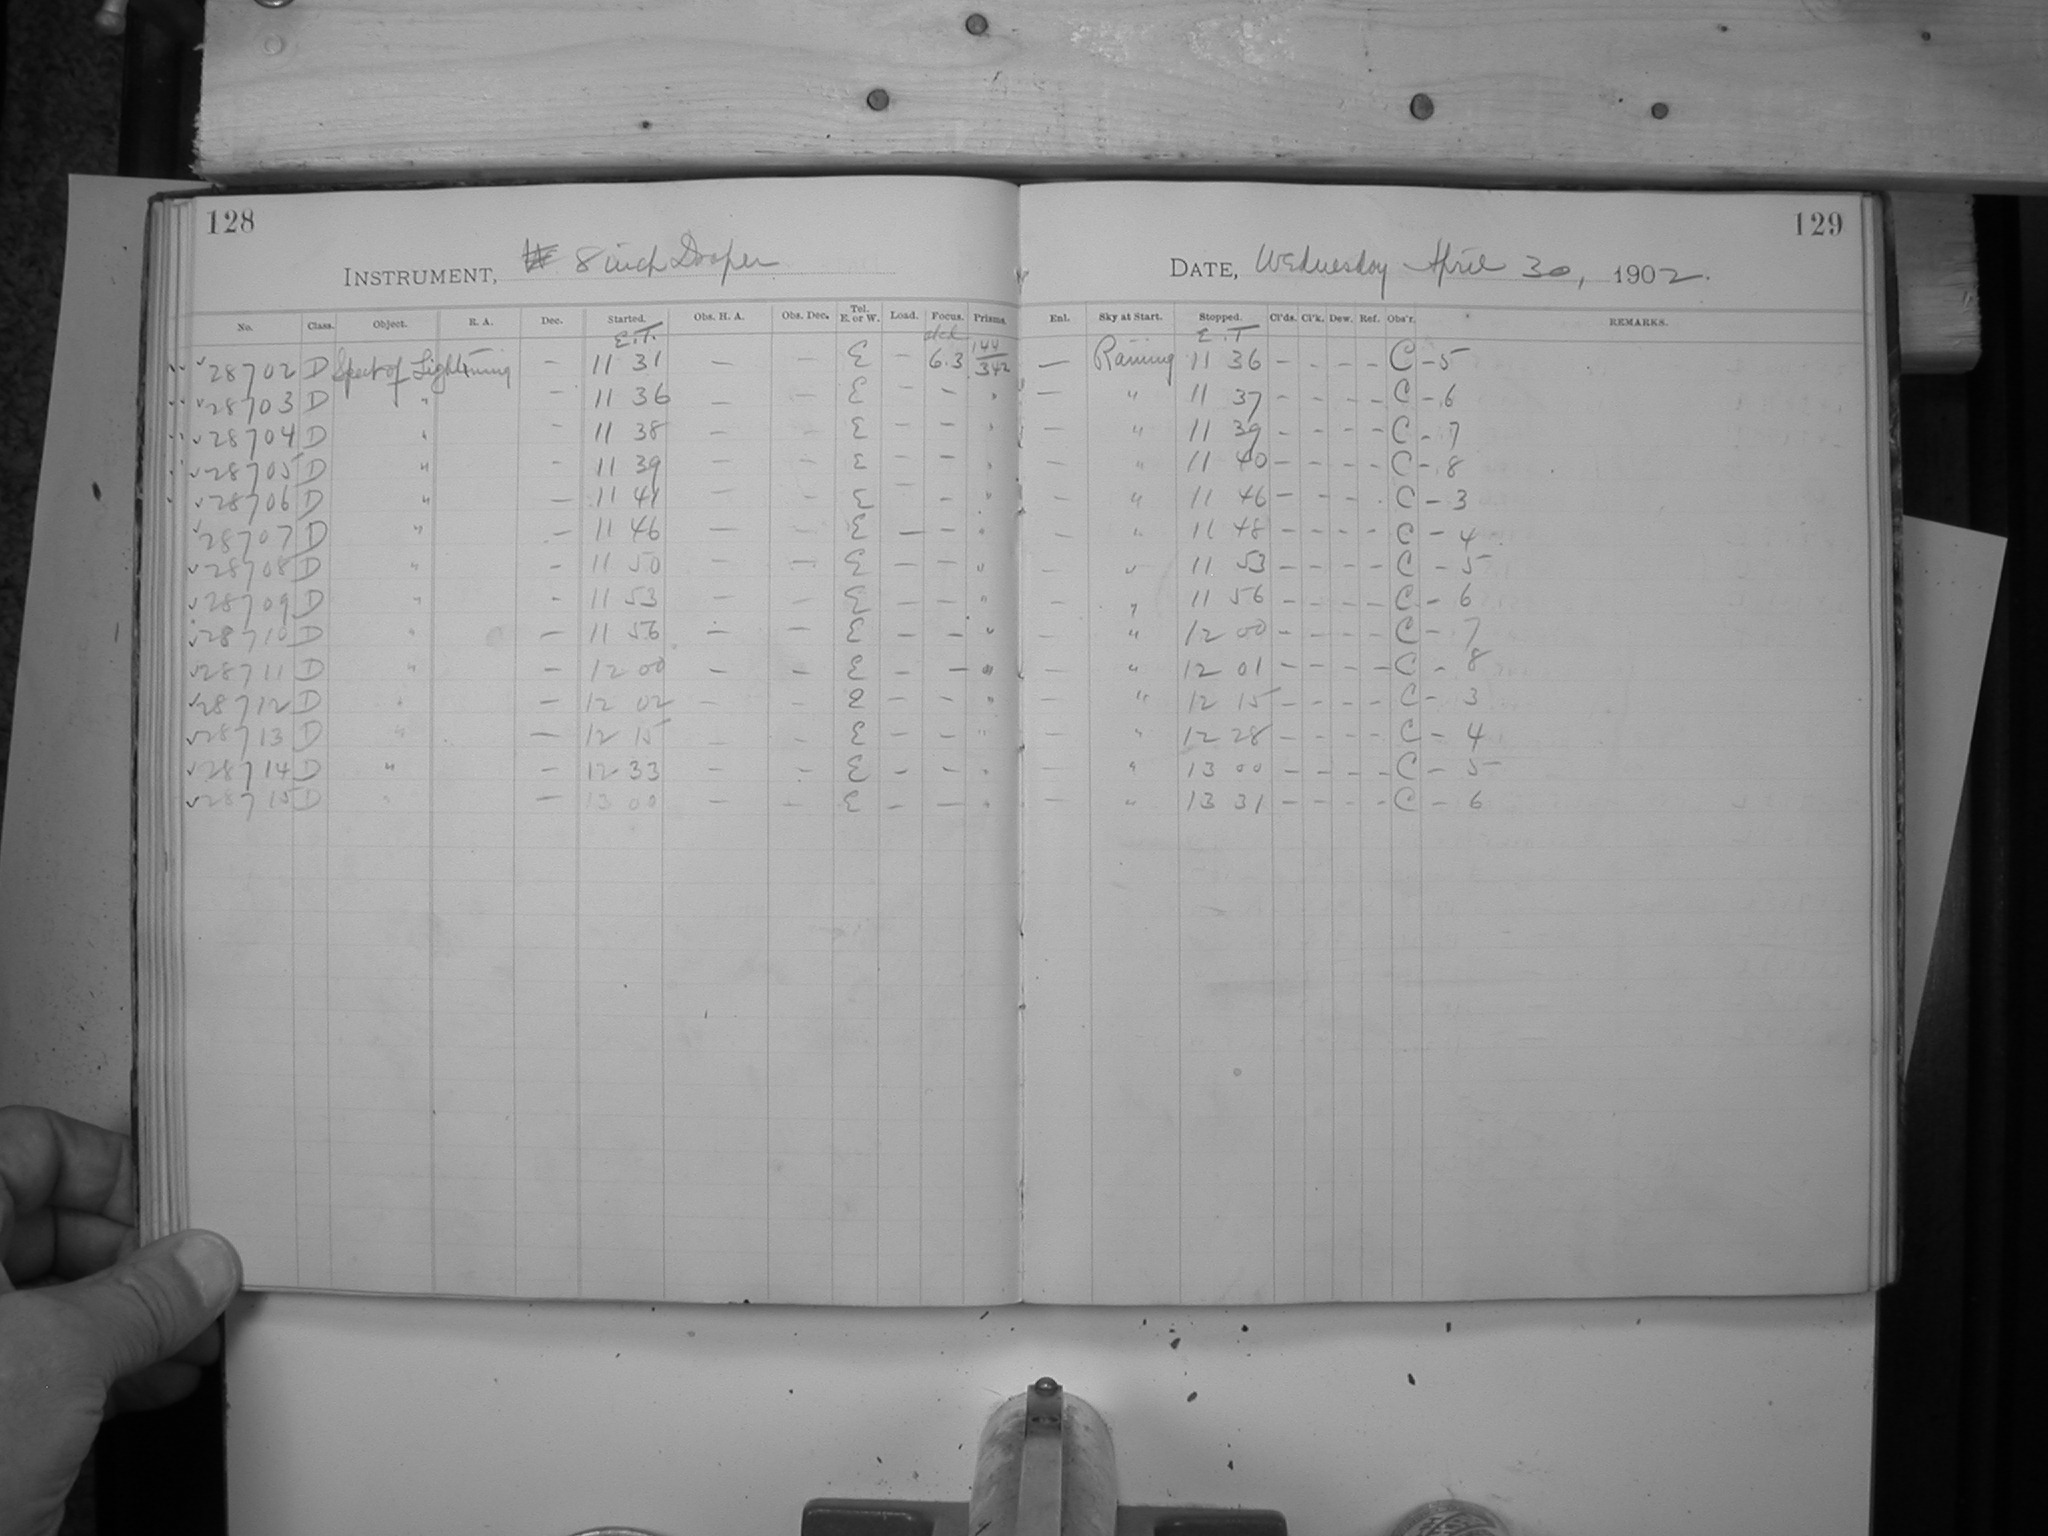 128
129
INSTRUMENT, 8 inch Draper
DATE, Wednesday April 30, 1902.
No. Class. Object. R. A. Dec. Started. Obs. H. A. Obs. Dec. Tel. E. or W. Load. Focus. Prisms. Enl. Sky at Start. Stopped. Cl'ds. Cl'k. Dew. Ref. Obs'r. REMARKS.
E.T. E.T
28702 D Spect of Lightning — 11 31 — — E — 6.3 144/342 — Raining 11 36 - - - - C - 5
28703 D " — 11 36 — — E - - " — " 11 37 - - - - C - 6
28704 D " - 11 38 — — E - - " — " 11 39 - - - - C - 7
28705 D " - 11 39 — — E - - " — " 11 40 - - - - C - 8
28706 D " — 11 41 — — E - - " — " 11 46 - - - - C - 3
28707 D " — 11 46 — — E — - " — " 11 48 - - - - C - 4
28708 D " - 11 50 — — E - - " — " 11 53 - - - - C - 5
28709 D " - 11 53 — — E - - " — " 11 56 - - - - C - 6
28710 D " — 11 56 — — E - - " — " 12 00 - - - - C - 7
28711 D " — 12 00 — — E - - " — " 12 01 - - - - C - 8
28712 D " — 12 02 — — E - - " — " 12 15 - - - - C - 3
28713 D " — 12 15 — — E - - " — " 12 28 - - - - C - 4
28714 D " — 12 33 — — E - - " — " 13 00 - - - - C - 5
28715 D " — 13 00 — — E - - " — " 13 31 - - - - C - 6